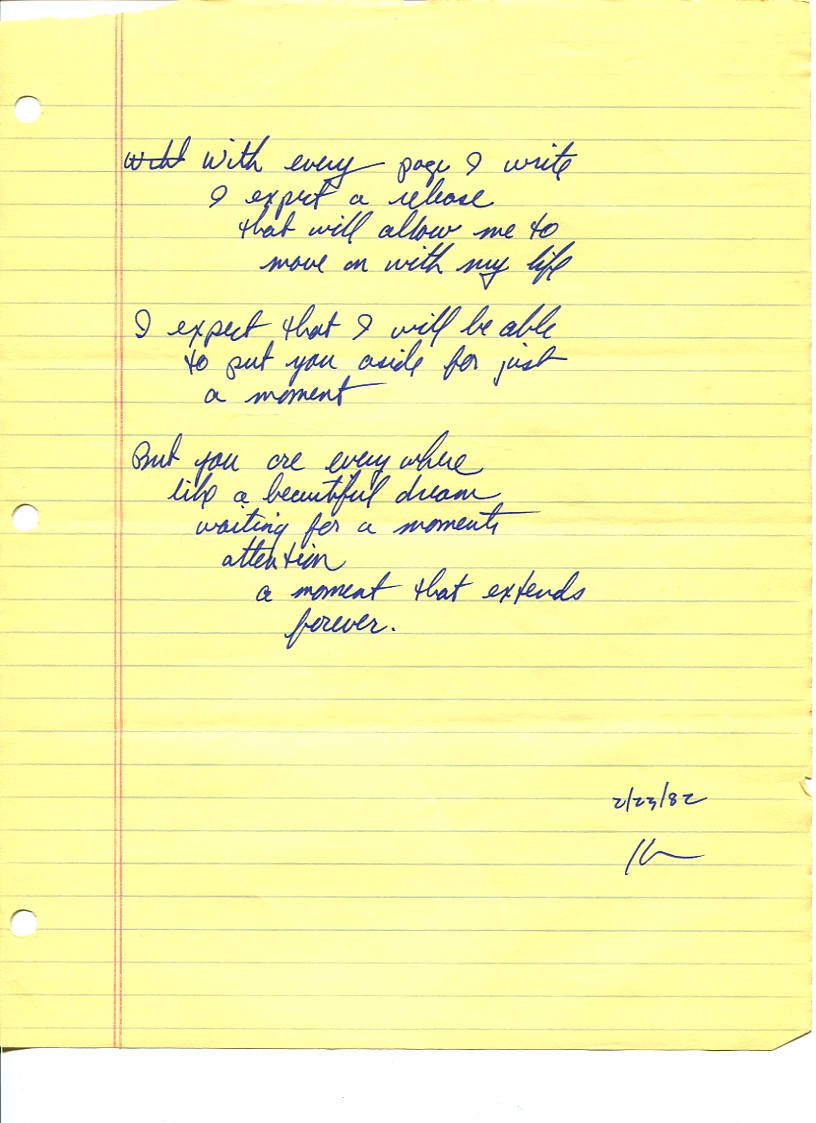 With every page I write
I expect a release
that will allow me to
move on with my life
I expect that I will be able
to put you aside for just
a moment
But you are everywhere
like a beautiful dream
waiting for a moments
attention
a moment that extends
forever.
2/23/82